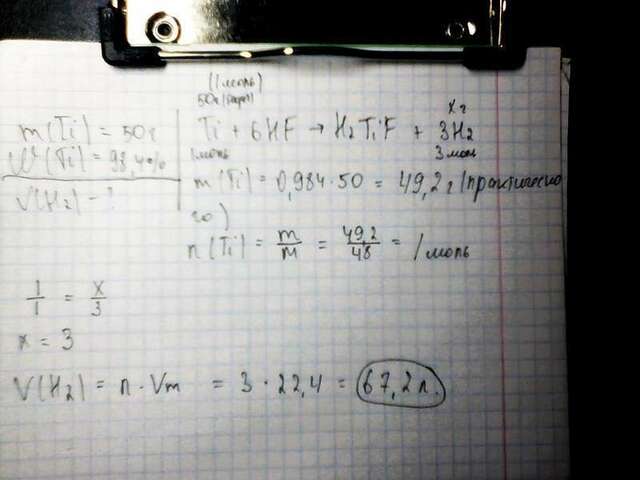 (1 моль)
50г (
m(Ti) = 50г
Ti + 6HF → H₂TiF + 3H₂
x г
W(Ti) = 98,4%
1 моль
3 моль
V(H₂) - ?
m(Ti) = 0,984 · 50 = 49,2 г (практическо
го)
n(Ti) = m/M = 49,2/48 = 1 моль
1/1 = x/3
x = 3
V(H₂) = n · Vm = 3 · 22,4 = 67,2 л.